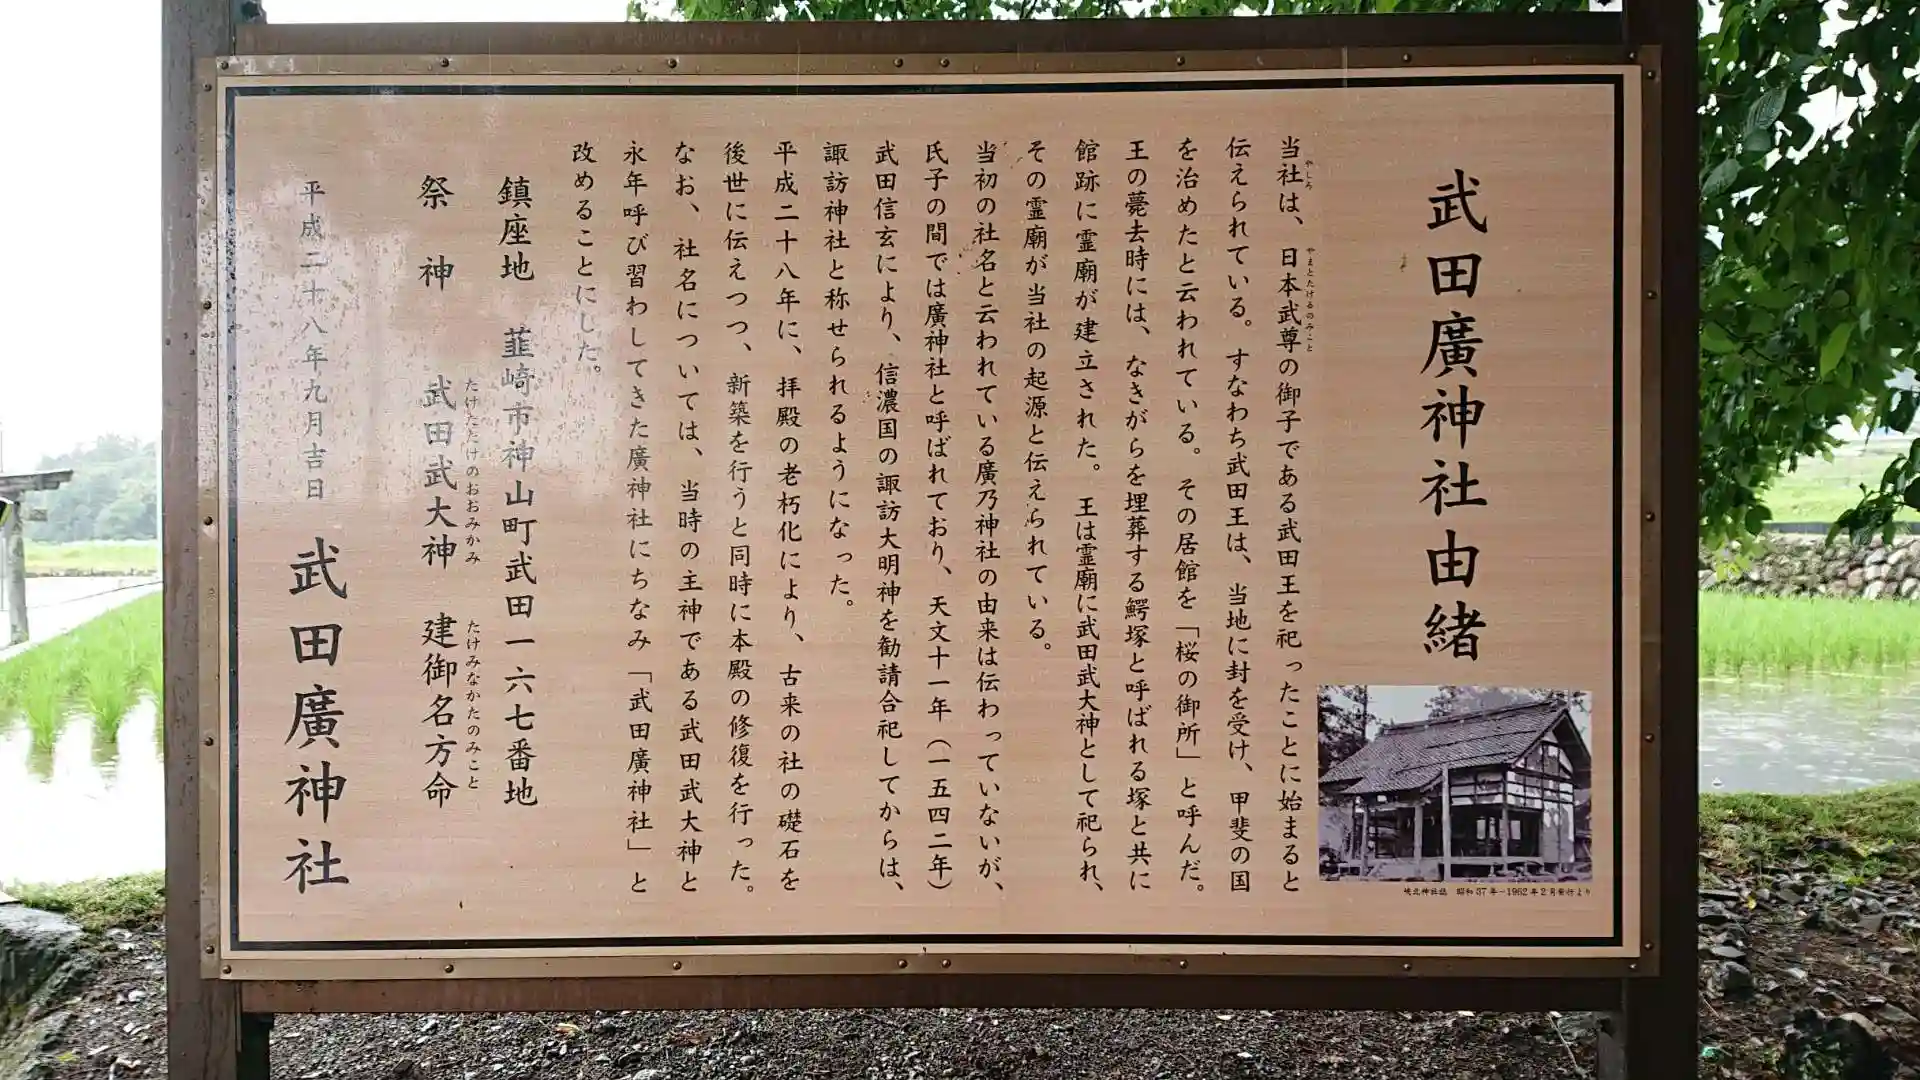 武田廣神社由緒
当社は、日本武尊の御子である武田王を祀ったことに始まると
やしろ
やまとたけるのみこと
伝えられている。すなわち武田王は、当地に封を受け、甲斐の国
を治めたと云われている。その居館を「桜の御所」と呼んだ。
王の薨去時には、なきがらを埋葬する鰐塚と呼ばれる塚と共に
館跡に霊廟が建立された。王は霊廟に武田武大神として祀られ、
その霊廟が当社の起源と伝えられている。
当初の社名と云われている廣乃神社の由来は伝わっていないが、
氏子の間では廣神社と呼ばれており、天文十一年(一五四二年)
武田信玄により、信濃国の諏訪大明神を勧請合祀してからは、
諏訪神社と称せられるようになった。
平成二十八年に、拝殿の老朽化により、古来の社の礎石を
後世に伝えつつ、新築を行うと同時に本殿の修復を行った。
なお、社名については、当時の主神である武田武大神と
永年呼び習わしてきた廣神社にちなみ「武田廣神社」と
改めることにした。
鎮座地 韮崎市神山町武田一六七番地
祭神 武田武大神 建御名方命
たけたたけのおおみかみ
たけみなかたのみこと
平成二十八年九月吉日 武田廣神社
峡北神社誌 昭和37年-1962年2月発行より